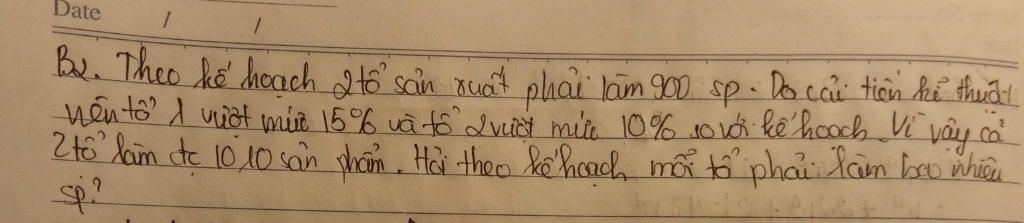 Date / /
B2. Theo kế hoạch 2 tổ sản xuất phải làm 900 sp. Do cải tiến kĩ thuật
nên tổ 1 vượt mức 15% và tổ 2 vượt mức 10% so với kế hoạch. Vì vậy cả
2 tổ làm đc 1010 sản phẩm. Hỏi theo kế hoạch mỗi tổ phải làm bao nhiêu
sp?